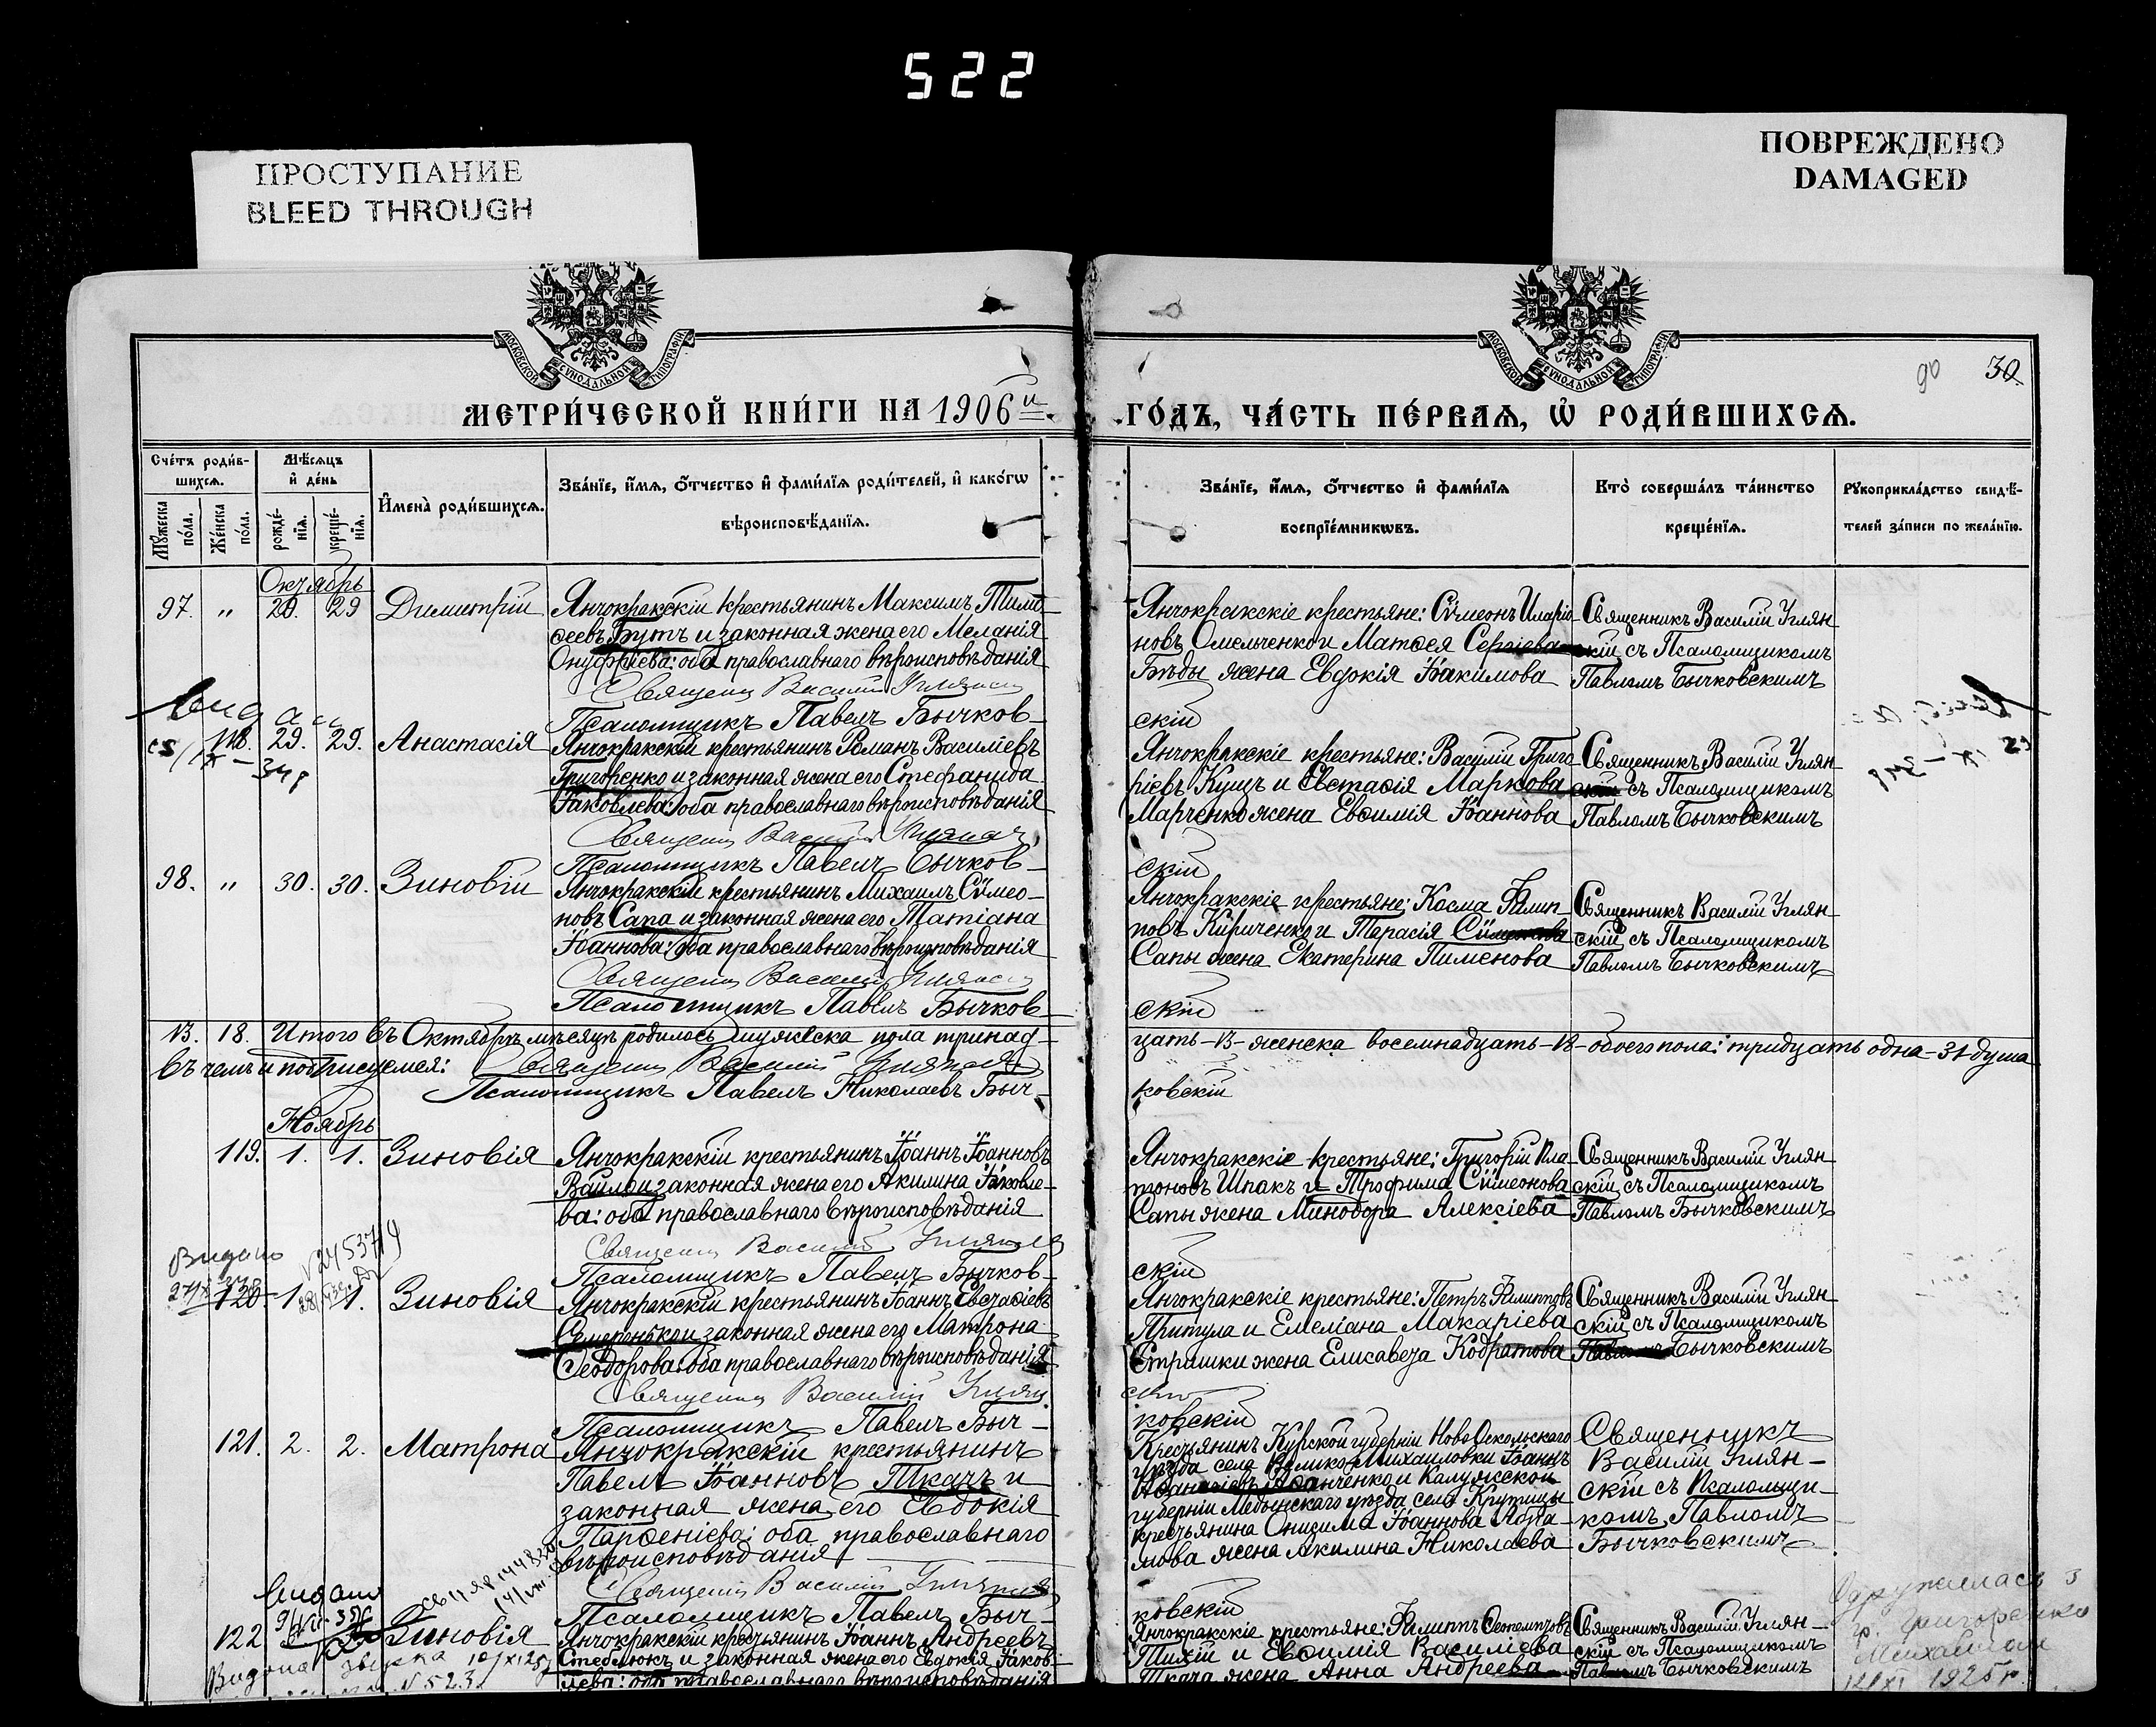 522
ПРОСТУПАНИЕ
BLEED THROUGH
ПОВРЕЖДЕНО
DAMAGED
МОСКОВСКОЙ СѴНОДАЛЬНОЙ ТИПОГРАФІИ
МОСКОВСКОЙ СѴНОДАЛЬНОЙ ТИПОГРАФІИ
90 30
МЕТРИ́ЧЕСКОЙ КНИ́ГИ НА 1906й
ГО́ДЪ, ЧА́СТЬ ПЕ́РВАЯ, Ѡ҆ РОДИ́ВШИХСЯ.
Сче́тъ роди́в-
шихся.
Мѣ́сяцъ
и҆ де́нь
Мꙋ́жеска
по́ла.
Же́нска
по́ла.
рожде́-
нїя.
креще́-
нїя.
И҆мена̀ роди́вшихся.
Зва́нїе, и҆́мя, ѻ҆́тчество и҆ фамѝлїя роди́телей, и҆ како́гѡ
вѣроисповѣ́данїя.
Зва́нїе, и҆́мя, ѻ҆́тчество и҆ фамѝлїя
воспрїе́мникѡвъ.
Кто̀ соверша́лъ та́инство
креще́нїя.
Рꙋкоприкла́дство свидѣ́-
телей за́писи по жела́нїю.
Октябрь
97. " 29. 29 Димитрій
Янчокракскій крестьянинъ Максимъ Тимо-
ѳеевъ Бутъ и законная жена его Меланія
Онуфріева: оба православнаго вѣроисповѣданія
Священн Василій Углянс
Псаломщикъ Павелъ Бычков-
Янчокракскіе крестьяне: Сѵмеонъ Иларіо-
новъ Омельченко и Матѳея Сергіева
Бѣды жена Евдокія Іоакимова
скій
Священникъ Василій Углян-
скій съ Псаломщикомъ
Павломъ Бычковскимъ
118. 29. 29. Анастасія
Янчокракскій крестьянинъ Романъ Василіевъ
Григоренко и законная жена его Стефанида
Іаковлева: оба православнаго вѣроисповѣданія
Священн Василій Углянс
Псаломщикъ Павелъ Бычков-
Янчокракскіе крестьяне: Василій Григо-
ріевъ Кущъ и Евстаѳія Маркова
Марченко жена Евѳимія Іоаннова
скій
Священникъ Василій Углян-
скій съ Псаломщикомъ
Павломъ Бычковскимъ
98. " 30. 30. Зиновій
Янчокракскій крестьянинъ Михаилъ Сѵмео-
новъ Сапа и законная жена его Татіана
Іоаннова: оба православнаго вѣроисповѣданія
Священн Василій Углянс
Псаломщикъ Павелъ Бычков-
Янчокракскіе крестьяне: Косма Филип-
повъ Кириченко и Тарасія Сѵмеонова
Сапы жена Екатерина Пименова
скій
Священникъ Василій Углян-
скій съ Псаломщикомъ
Павломъ Бычковскимъ
13. 18. Итого въ Октябрѣ мѣсяцѣ родилось мужеска пола тринад-
цать -13- женска восемнадцать -18- обоего пола: тридцать одна -31- душа
въ чемъ и подписуемся: Священн Василій Углянск
Псаломщикъ Павелъ Николаевъ Быч-
ковскій
Ноябрь
119. 1. 1. Зиновія
Янчокракскій крестьянинъ Іоаннъ Іоанновъ
Вайло и законная жена его Акилина Іаковле-
ва: оба православнаго вѣроисповѣданія
Священн Василій Углянск
Псаломщикъ Павелъ Бычков-
Янчокракскіе крестьяне: Григорій Пла-
тоновъ Шпакъ и Трофима Сѵмеонова
Сапы жена Минодора Алексіева
скій
Священникъ Василій Углян-
скій съ Псаломщикомъ
Павломъ Бычковскимъ
120. 1. 1. Зиновія
Янчокракскій крестьянинъ Іоаннъ Евстаѳіевъ
Семеренько и законная жена его Матрона
Ѳеодорова: оба православнаго вѣроисповѣданія
Священн Василій Углян
Псаломщикъ Павелъ Быч-
Янчокракскіе крестьяне: Петръ Филипповъ
Притула и Емеліана Макаріева
Стришки жена Елисавета Кодратова
ковскій
Священникъ Василій Углян-
скій съ Псаломщикомъ
Павломъ Бычковскимъ
121. 2. 2. Матрона
Янчокракскій крестьянинъ
Павелъ Іоанновъ Ткачъ и
законная жена его Евдокія
Парѳеніева: оба православнаго
вѣроисповѣданія
Священн Василій Углянск
Псаломщикъ Павелъ Быч-
Крестьянинъ Курской губерніи НовоОскольскаго
уѣзда села ВеликоМихайловки Іоаннъ
и Калужской
губерніи Медынскаго уѣзда села Крутицы
крестьянина Онисима Іоаннова
жена Акилина Николаева
ковскій
Священникъ
Василій Углян-
скій съ Псаломщи-
комъ Павломъ
Бычковскимъ
122 2 Зиновія
Янчокракскій крестьянинъ Іоаннъ Андреевъ
Стеблюкъ и законная жена его Евдокія Іаков-
лева: оба православнаго вѣроисповѣданія
Янчокракскіе крестьяне: Филиппъ
Тихій и Евѳимія Василіева
Ткача жена Анна Андреева
Священникъ Василій Углян-
скій съ Псаломщикомъ
Павломъ Бычковскимъ
Видано
Видана
N 523
Одружилась з
гр. Григоренко
Михайлом
12/XI 1925 р.